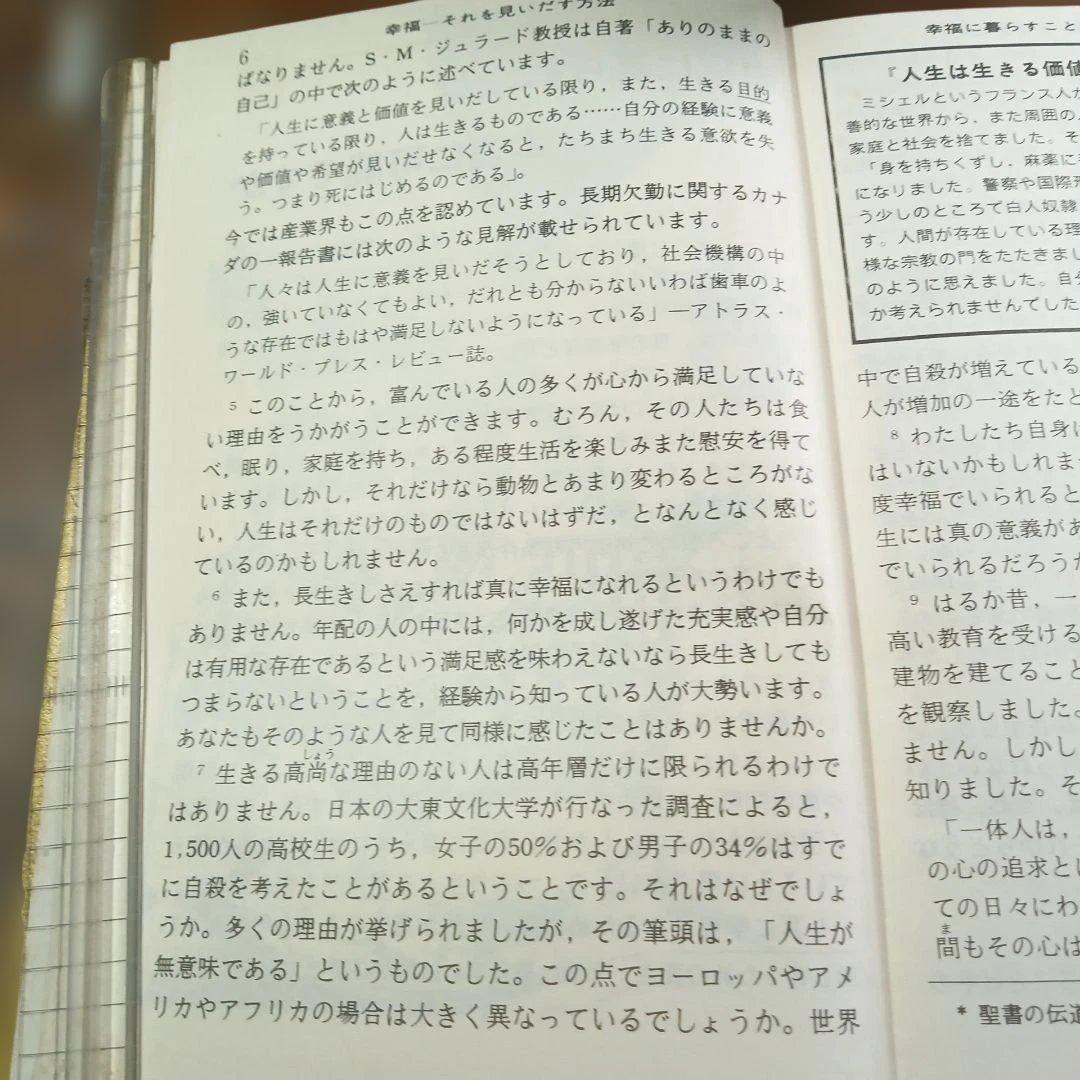 幸福―それを見いだす方法
6
ばなりません。S・M・ジュラード教授は自著「ありのままの
自己」の中で次のように述べています。
「人生に意義と価値を見いだしている限り，また，生きる目的
を持っている限り，人は生きるものである……自分の経験に意義
や価値や希望が見いだせなくなると，たちまち生きる意欲を失
う。つまり死にはじめるのである」。
今では産業界もこの点を認めています。長期欠勤に関するカナ
ダの一報告書には次のような見解が載せられています。
「人々は人生に意義を見いだそうとしており，社会機構の中
の，強いていなくてもよい，だれとも分からないいわば歯車のよ
うな存在ではもはや満足しないようになっている」―アトラス・
ワールド・プレス・レビュー誌。
5 このことから，富んでいる人の多くが心から満足していな
い理由をうかがうことができます。むろん，その人たちは食
べ，眠り，家庭を持ち，ある程度生活を楽しみまた慰安を得て
います。しかし，それだけなら動物とあまり変わるところがな
い，人生はそれだけのものではないはずだ，となんとなく感じ
ているのかもしれません。
6 また，長生きしさえすれば真に幸福になれるというわけでも
ありません。年配の人の中には，何かを成し遂げた充実感や自分
は有用な存在であるという満足感を味わえないなら長生きしても
つまらないということを，経験から知っている人が大勢います。
あなたもそのような人を見て同様に感じたことはありませんか。
しょう
7 生きる高尚な理由のない人は高年層だけに限られるわけで
はありません。日本の大東文化大学が行なった調査によると，
1,500人の高校生のうち，女子の50％および男子の34％はすで
に自殺を考えたことがあるということです。それはなぜでしょ
うか。多くの理由が挙げられましたが，その筆頭は，「人生が
無意味である」というものでした。この点でヨーロッパやアメ
リカやアフリカの場合は大きく異なっているでしょうか。世界
幸福に暮らすこと
『人生は生きる価値
ミシェルというフランス人が
善的な世界から，また周囲の人
家庭と社会を捨てました。そ
「身を持ちくずし，麻薬に
になりました。警察や国際刑
う少しのところで白人奴隷
す。人間が存在している理
様な宗教の門をたたきまし
のように思えました。自分
か考えられませんでした
中で自殺が増えている
人が増加の一途をたど
8 わたしたち自身
はいないかもしれま
度幸福でいられると
生には真の意義があ
でいられるだろうか
9 はるか昔，一
高い教育を受ける
建物を建てること
を観察しました。
ません。しかし
知りました。そ
「一体人は，
の心の追求と
ての日々にわ
ま
間もその心は
* 聖書の伝道